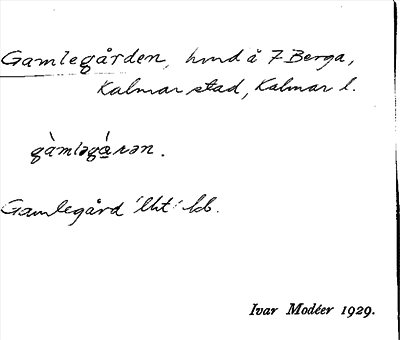 Gamlegården, hmd å 7 Berga,
Kalmar stad, Kalmar l.
gàmləgá̱rən.
Gamlegård 'lht' kb.
Ivar Modéer 1929.